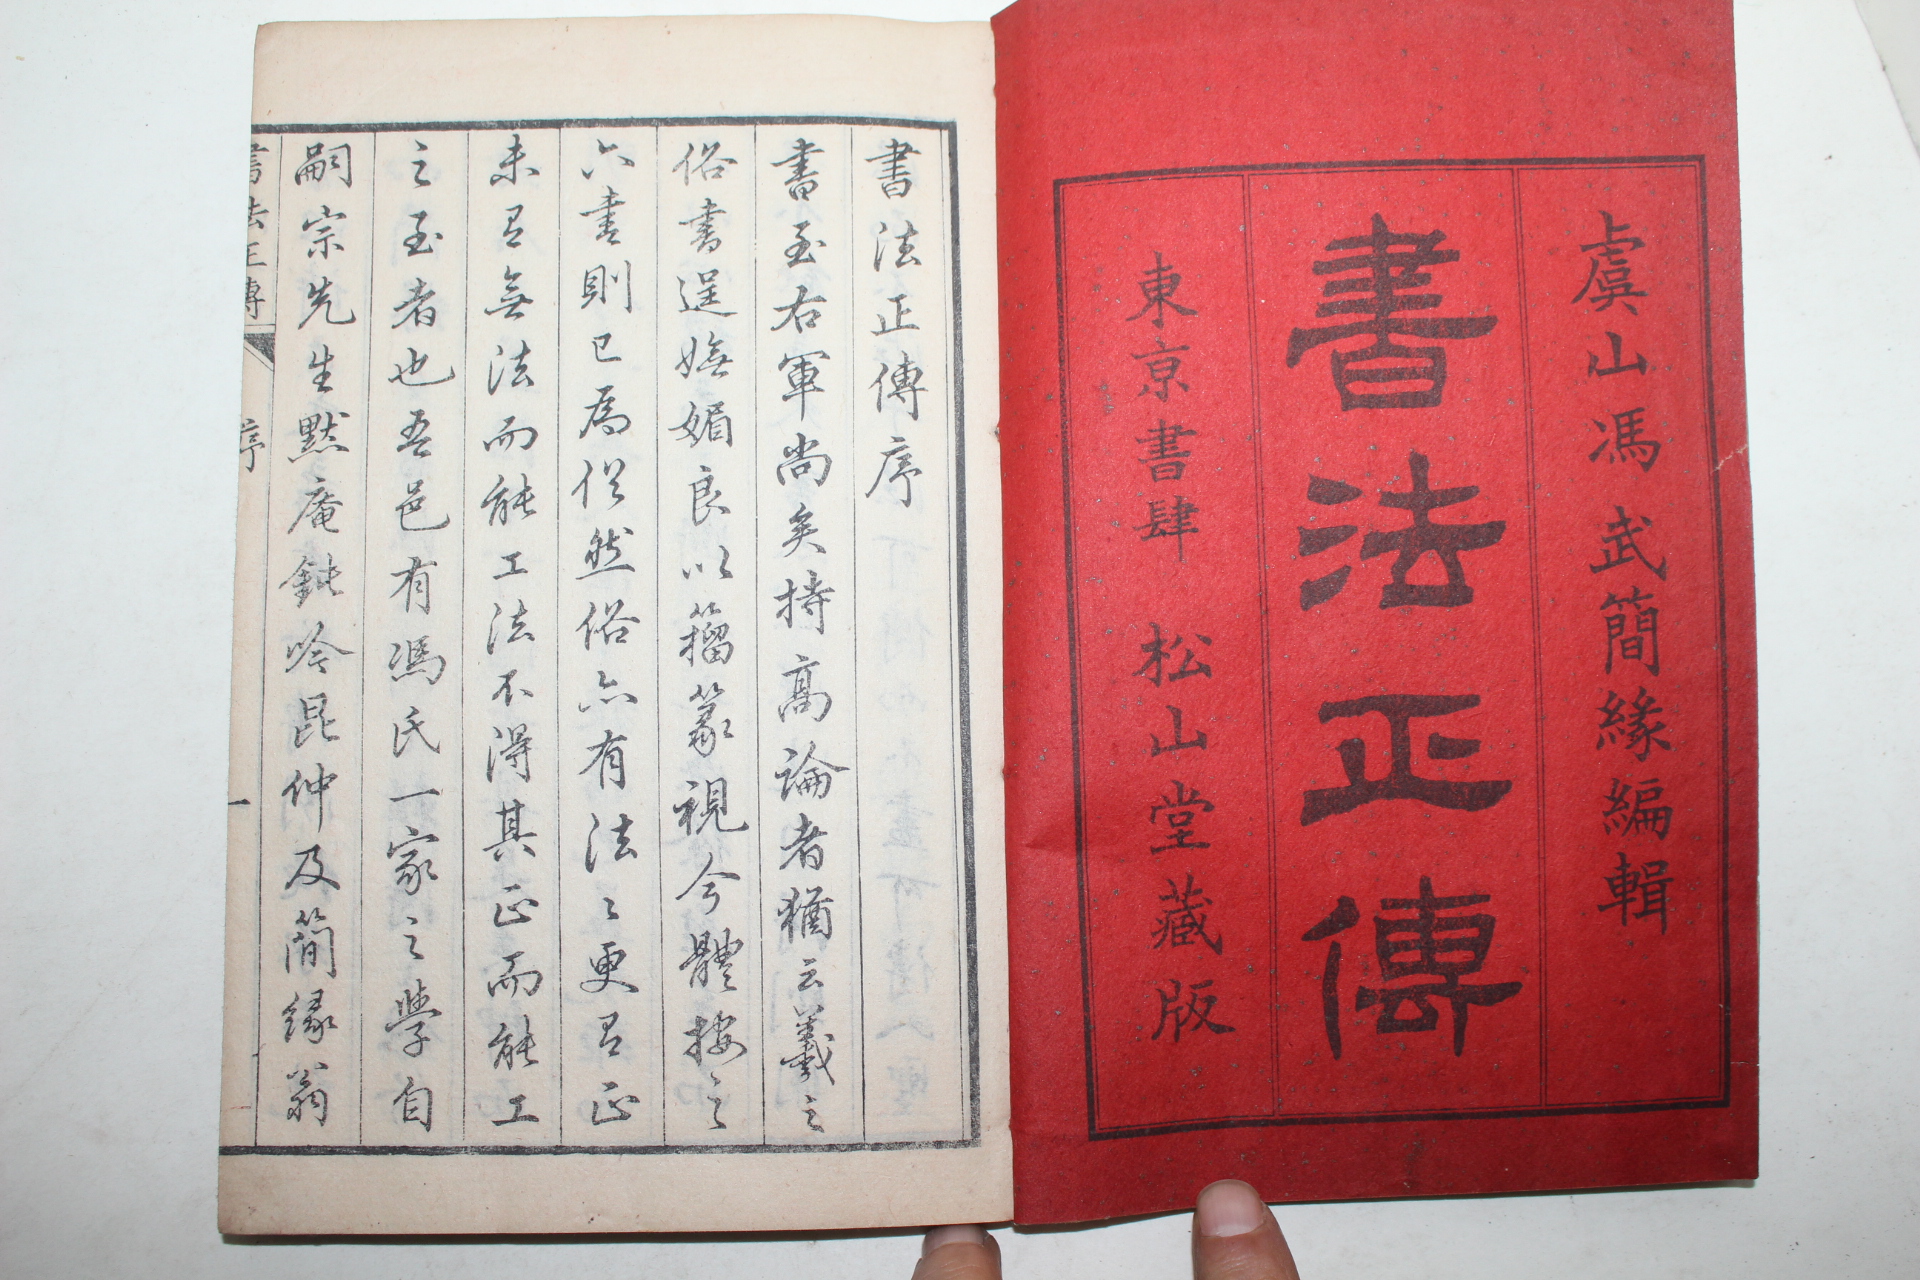 虞山馮武簡緣編輯
書法正傳
東京書肆 松山堂藏版
書法正傳序
書至右軍尚矣持高論者猶云羲之
俗書逞嫵媚良以籀篆視今體接之
六書則已為俗然俗亦有法〻更有正
未有無法而能工法不得其正而能工
之至者也吾邑有馮氏一家之學自
嗣宗先生默庵鈍吟昆仲及簡緣翁
書法正傳 序 一